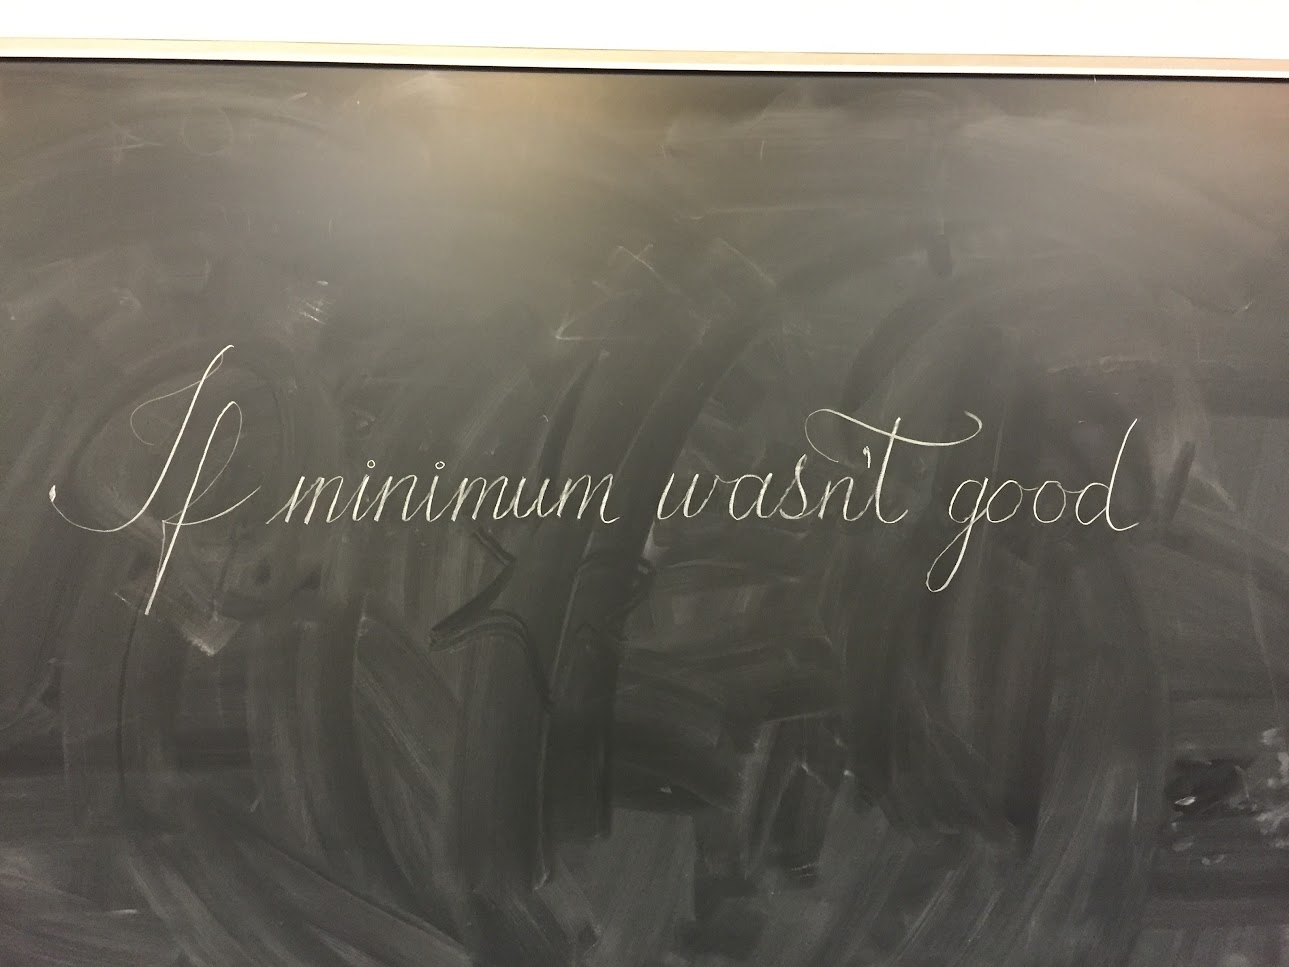 If minimum wasn't good